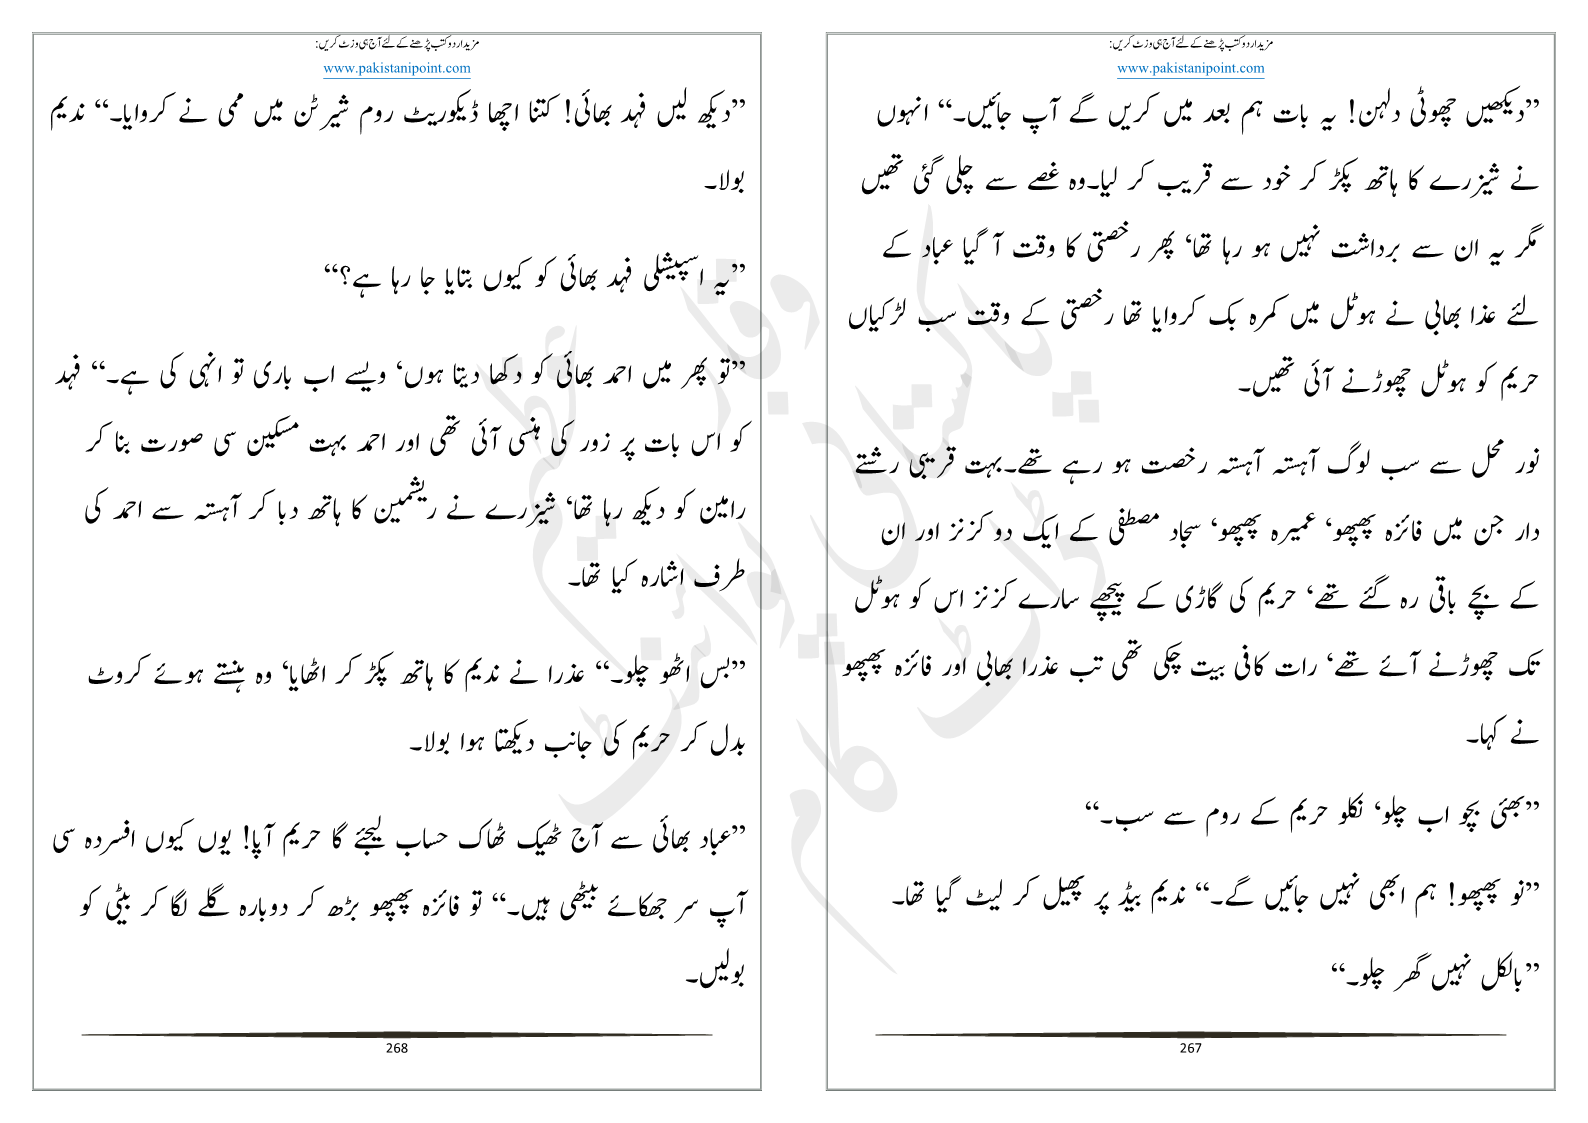 مزید اردو کتب پڑھنے کے لئے آج ہی وزٹ کریں:
www.pakistanipoint.com
”دیکھیں چھوٹی دلہن! یہ بات ہم بعد میں کریں گے آپ جائیں۔“ انہوں
نے شیزرے کا ہاتھ پکڑ کر خود سے قریب کر لیا۔وہ غصے سے چلی گئی تھیں
مگر یہ ان سے برداشت نہیں ہو رہا تھا‘ پھر رخصتی کا وقت آ گیا عباد کے
لئے عذا بھابی نے ہوٹل میں کمرہ بک کروایا تھا رخصتی کے وقت سب لڑکیاں
حریم کو ہوٹل چھوڑنے آئی تھیں۔
نور محل سے سب لوگ آہستہ آہستہ رخصت ہو رہے تھے۔بہت قریبی رشتے
دار جن میں فائزہ پھپھو‘ عمیرہ پھپھو‘ سجاد مصطفی کے ایک دو کزنز اور ان
کے بچے باقی رہ گئے تھے‘ حریم کی گاڑی کے پیچھے سارے کزنز اس کو ہوٹل
تک چھوڑنے آئے تھے‘ رات کافی بیت چکی تھی تب عذرا بھابی اور فائزہ پھپھو
نے کہا۔
”بھئی بچو اب چلو‘ نکلو حریم کے روم سے سب۔“
”نو پھپھو! ہم ابھی نہیں جائیں گے۔“ ندیم بیڈ پر پھیل کر لیٹ گیا تھا۔
”بالکل نہیں گھر چلو۔“
267
مزید اردو کتب پڑھنے کے لئے آج ہی وزٹ کریں:
www.pakistanipoint.com
”دیکھ لیں فہد بھائی! کتنا اچھا ڈیکوریٹ روم شیرٹن میں ممی نے کروایا۔“ ندیم
بولا۔
”یہ اسپیشلی فہد بھائی کو کیوں بتایا جا رہا ہے؟“
”تو پھر میں احمد بھائی کو دکھا دیتا ہوں‘ ویسے اب باری تو انہی کی ہے۔“ فہد
کو اس بات پر زور کی ہنسی آئی تھی اور احمد بہت مسکین سی صورت بنا کر
رامین کو دیکھ رہا تھا‘ شیزرے نے ریشمین کا ہاتھ دبا کر آہستہ سے احمد کی
طرف اشارہ کیا تھا۔
”بس اٹھو چلو۔“ عذرا نے ندیم کا ہاتھ پکڑ کر اٹھایا‘ وہ ہنستے ہوئے کروٹ
بدل کر حریم کی جانب دیکھتا ہوا بولا۔
”عباد بھائی سے آج ٹھیک ٹھاک حساب لیجئے گا حریم آپا! یوں کیوں افسردہ سی
آپ سر جھکائے بیٹھی ہیں۔“ تو فائزہ پھپھو بڑھ کر دوبارہ گلے لگا کر بیٹی کو
بولیں۔
268
پاکستانی پوائنٹ ڈاٹ کام